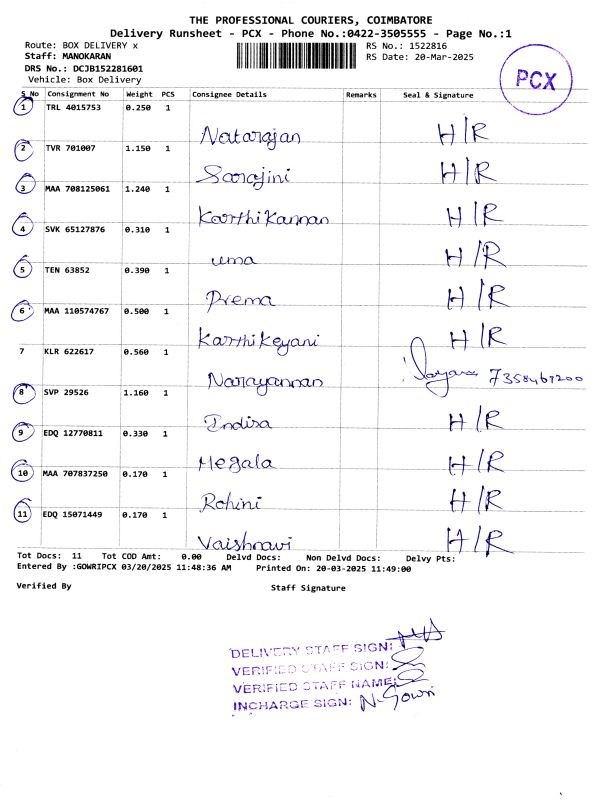 THE PROFESSIONAL COURIERS, COIMBATORE
Delivery Runsheet - PCX - Phone No.:0422-3505555 - Page No.:1
Route: BOX DELIVERY x
RS No.: 1522816
Staff: MANOKARAN
RS Date: 20-Mar-2025
DRS No.: DCJB152281601
Vehicle: Box Delivery
PCX
S No Consignment No Weight PCS Consignee Details Remarks Seal & Signature
1 TRL 4015753 0.250 1
Natarajan H/R
2 TVR 701007 1.150 1
Sarojini H/R
3 MAA 708125061 1.240 1
Karthikannan H/R
4 SVK 65127876 0.310 1
uma H/R
5 TEN 63852 0.390 1
Prema H/R
6 MAA 110574767 0.500 1
Karthikeyani H/R
7 KLR 622617 0.560 1
Narayannan 7358469200
8 SVP 29526 1.160 1
Indira H/R
9 EDQ 12770811 0.330 1
Megala H/R
10 MAA 707837250 0.170 1
Rohini H/R
11 EDQ 15071449 0.170 1
Vaishnavi H/R
Tot Docs: 11 Tot COD Amt: 0.00 Delvd Docs: Non Delvd Docs: Delvy Pts:
Entered By :GOWRIPCX 03/20/2025 11:48:36 AM Printed On: 20-03-2025 11:49:00
Verified By Staff Signature
DELIVERY STAFF SIGN:
VERIFIED STAFF SIGN:
VERIFIED STAFF NAME:
INCHARGE SIGN: N. Gowri